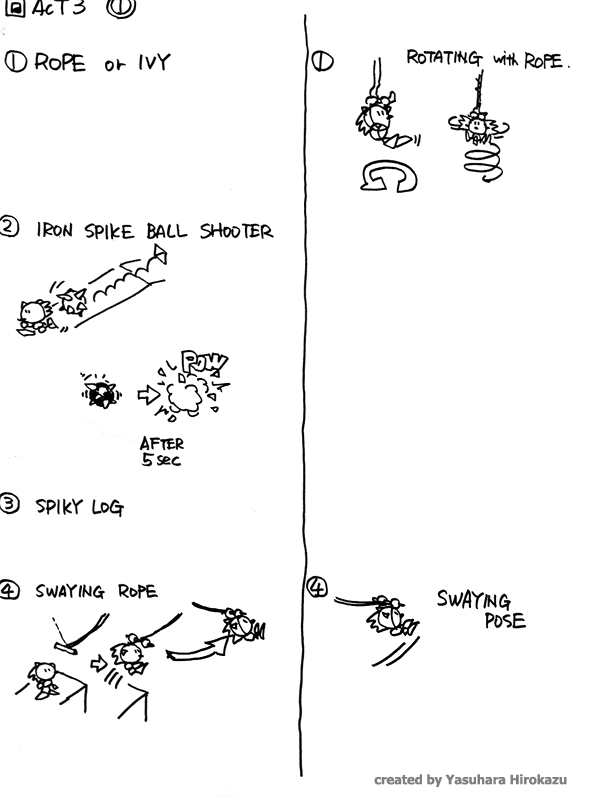 ACT 3 ①
① ROPE or IVY
② IRON SPIKE BALL SHOOTER
POW
AFTER
5 sec
③ SPIKY LOG
④ SWAYING ROPE
① ROTATING with ROPE.
④ SWAYING
POSE
created by Yasuhara Hirokazu